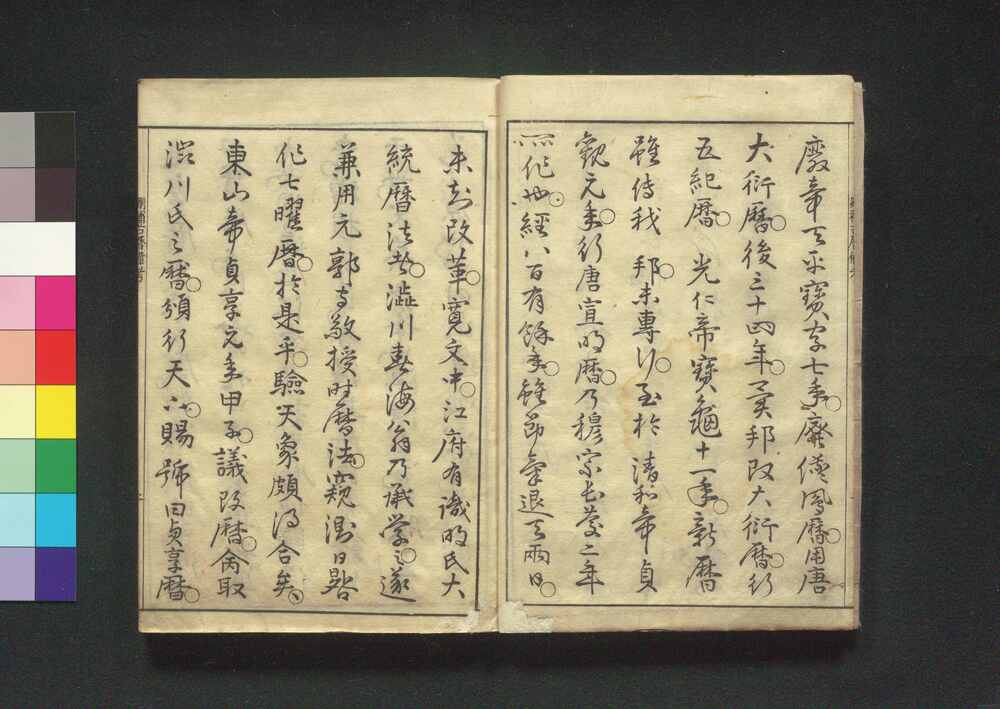 廢帝天平寶字七年。廢儀鳳曆。用唐
大衍曆。後三十四年。吾邦改大衍曆。行
五紀曆。光仁帝寶龜十一年。新曆
雖傳我邦。未專行。至於清和帝貞
觀元年。行唐宣明曆。乃穆宗長慶二年
所作也。經八百有餘年。雖節氣退天兩日。
未知改革。寬文中。江府有識明氏大
統曆法者。澁川春海翁乃承學之。遂
兼用元郭守敬授時曆法。窺測日晷
作七曜曆。於是乎驗天象。頗得合矣。
東山帝貞享元年甲子。議改曆。而取
澁川氏之曆。頒行天下。賜號曰貞享曆。